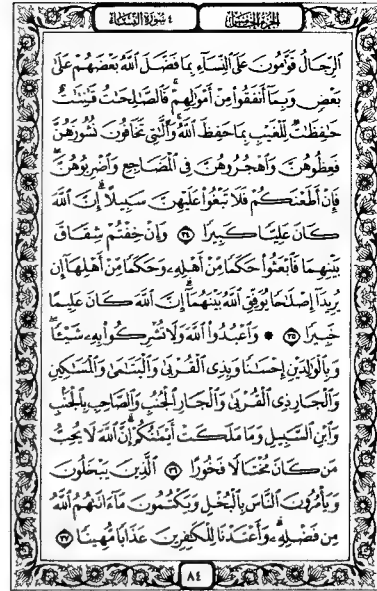 الجزء الخامس
٤ سورة النساء
الرِّجَالُ قَوَّٰمُونَ عَلَى النِّسَآءِ بِمَا فَضَّلَ اللَّهُ بَعْضَهُمْ عَلَىٰ
بَعْضٍ وَبِمَآ أَنفَقُوا۟ مِنْ أَمْوَٰلِهِمْ ۚ فَالصَّٰلِحَٰتُ قَٰنِتَٰتٌ
حَٰفِظَٰتٌ لِّلْغَيْبِ بِمَا حَفِظَ اللَّهُ ۚ وَالَّٰتِى تَخَافُونَ نُشُوزَهُنَّ
فَعِظُوهُنَّ وَاهْجُرُوهُنَّ فِى الْمَضَاجِعِ وَاضْرِبُوهُنَّ ۖ
فَإِنْ أَطَعْنَكُمْ فَلَا تَبْغُوا۟ عَلَيْهِنَّ سَبِيلًا ۗ إِنَّ اللَّهَ
كَانَ عَلِيًّا كَبِيرًا ٣٤ وَإِنْ خِفْتُمْ شِقَاقَ
بَيْنِهِمَا فَابْعَثُوا۟ حَكَمًا مِّنْ أَهْلِهِۦ وَحَكَمًا مِّنْ أَهْلِهَآ إِن
يُرِيدَآ إِصْلَٰحًا يُوَفِّقِ اللَّهُ بَيْنَهُمَآ ۗ إِنَّ اللَّهَ كَانَ عَلِيمًا
خَبِيرًا ٣٥ ۞ وَاعْبُدُوا۟ اللَّهَ وَلَا تُشْرِكُوا۟ بِهِۦ شَيْـًٔا ۖ
وَبِالْوَٰلِدَيْنِ إِحْسَٰنًا وَبِذِى الْقُرْبَىٰ وَالْيَتَٰمَىٰ وَالْمَسَٰكِينِ
وَالْجَارِ ذِى الْقُرْبَىٰ وَالْجَارِ الْجُنُبِ وَالصَّاحِبِ بِالْجَنۢبِ
وَابْنِ السَّبِيلِ وَمَا مَلَكَتْ أَيْمَٰنُكُمْ ۗ إِنَّ اللَّهَ لَا يُحِبُّ
مَن كَانَ مُخْتَالًا فَخُورًا ٣٦ الَّذِينَ يَبْخَلُونَ
وَيَأْمُرُونَ النَّاسَ بِالْبُخْلِ وَيَكْتُمُونَ مَآ ءَاتَىٰهُمُ اللَّهُ
مِن فَضْلِهِۦ ۗ وَأَعْتَدْنَا لِلْكَٰفِرِينَ عَذَابًا مُّهِينًا ٣٧
٨٤